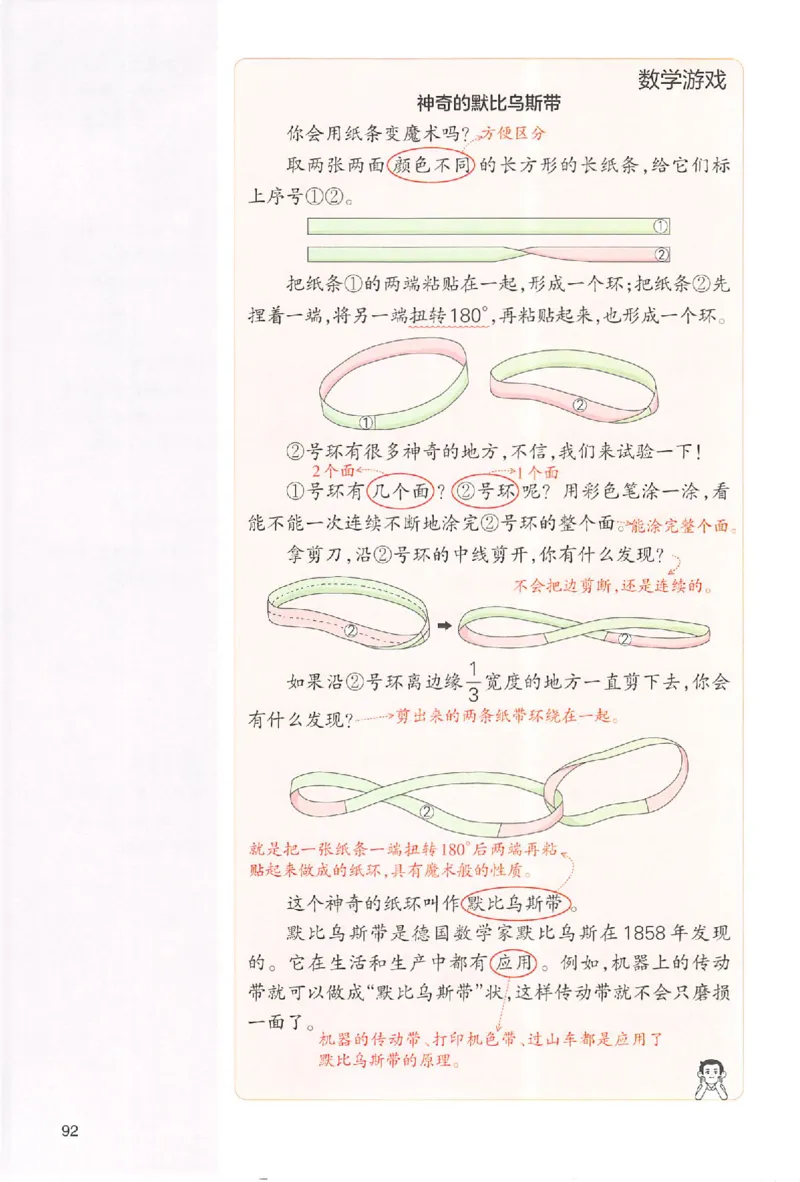 数学游戏
神奇的默比乌斯带
你会用纸条变魔术吗?方便区分
取两张两面颜色不同的长方形的长纸条,给它们标
上序号①②。
①
②
把纸条①的两端粘贴在一起,形成一个环;把纸条②先
捏着一端,将另一端扭转180°,再粘贴起来,也形成一个环。
①
②
②号环有很多神奇的地方,不信,我们来试验一下!
2个面 1个面
①号环有几个面?②号环呢?用彩色笔涂一涂,看
能不能一次连续不断地涂完②号环的整个面。能涂完整个面。
拿剪刀,沿②号环的中线剪开,你有什么发现?
不会把边剪断,还是连续的。
②
②
如果沿②号环离边缘1/3宽度的地方一直剪下去,你会
有什么发现?剪出来的两条纸带环绕在一起。
②
就是把一张纸条一端扭转180°后两端再粘
贴起来做成的纸环,具有魔术般的性质。
这个神奇的纸环叫作默比乌斯带。
默比乌斯带是德国数学家默比乌斯在1858年发现
的。它在生活和生产中都有应用。例如,机器上的传动
带就可以做成“默比乌斯带”状,这样传动带就不会只磨损
一面了。
机器的传动带、打印机色带、过山车都是应用了
默比乌斯带的原理。
92